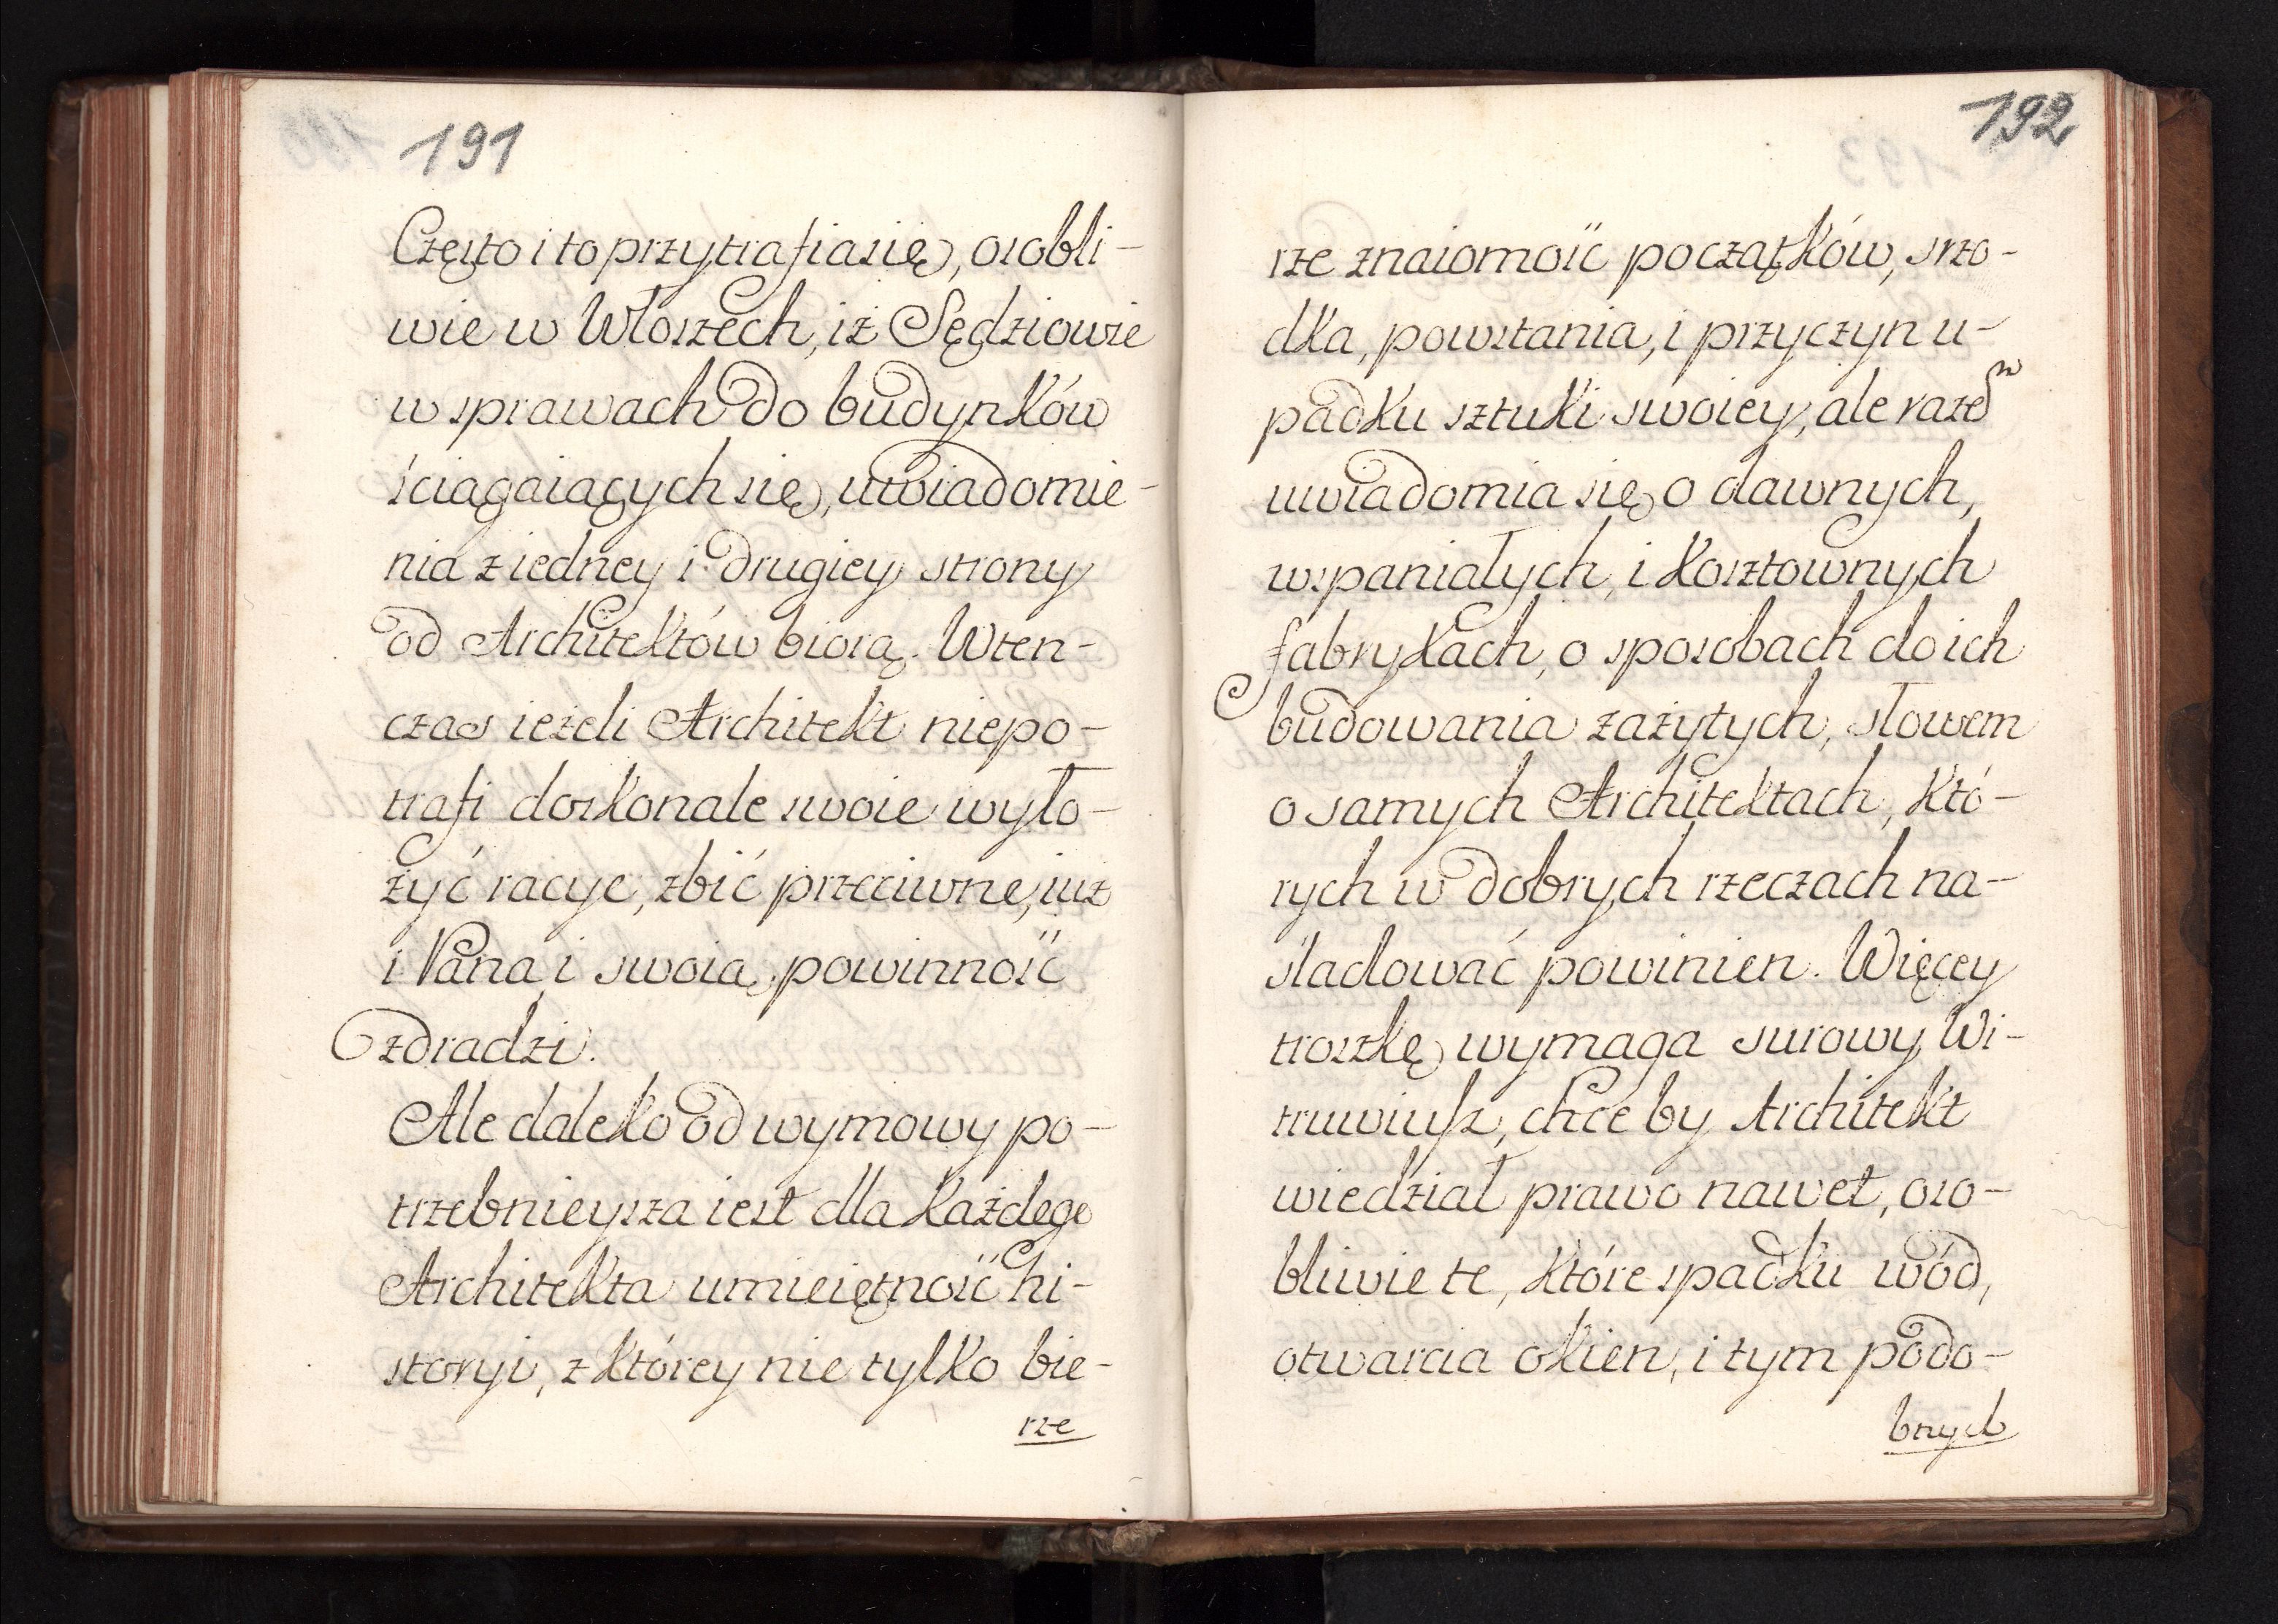 191
Często i to przytrafia się, osobli-
wie w Włoszech, iż Sędziowie
w sprawach do budynków
ściągaiących się, uwiadomie-
nia z iedney i drugiey strony
od Architektów biorą. Wten-
czas ieżeli Architekt niepo-
trafi doskonale swoie wyło-
żyć racye, zbić przeciwne, iuż
i Pana i swoią powinność
zdradzi.
Ale daleko od wymowy po-
trzebnieysza iest dla Każdego
Architekta umieiętność hi-
storyi, z którey nie tylko bie-
rze
192
rze znaiomość początków, srzo-
dka, powstania, i przyczyn u-
padku sztuki swoiey, ale razem
uwiadomia się o dawnych,
wspaniałych, i kosztownych
fabrykach, o sposobach do ich
budowania zażytych, słowem
o samych Architektach, któ-
rych w dobrych rzeczach na-
śladować powinien. Więcey
troszkę wymaga surowy Wi-
truwiusz, chce by Architekt
wiedział prawo nawet, oso-
bliwie te, które spadku wód,
otwarcia okien, i tym podo-
bnych